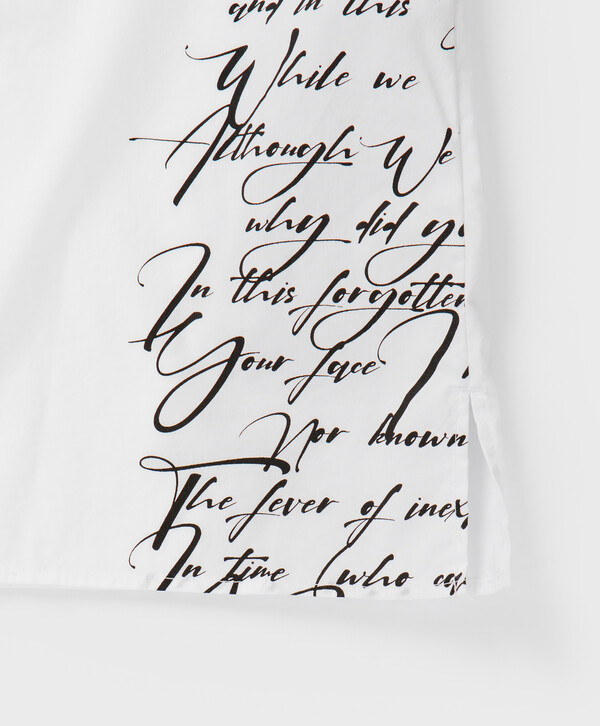 and in this
While we
Although We
why did
In this forgotten
Your face I
Nor known
The fever of
In time who